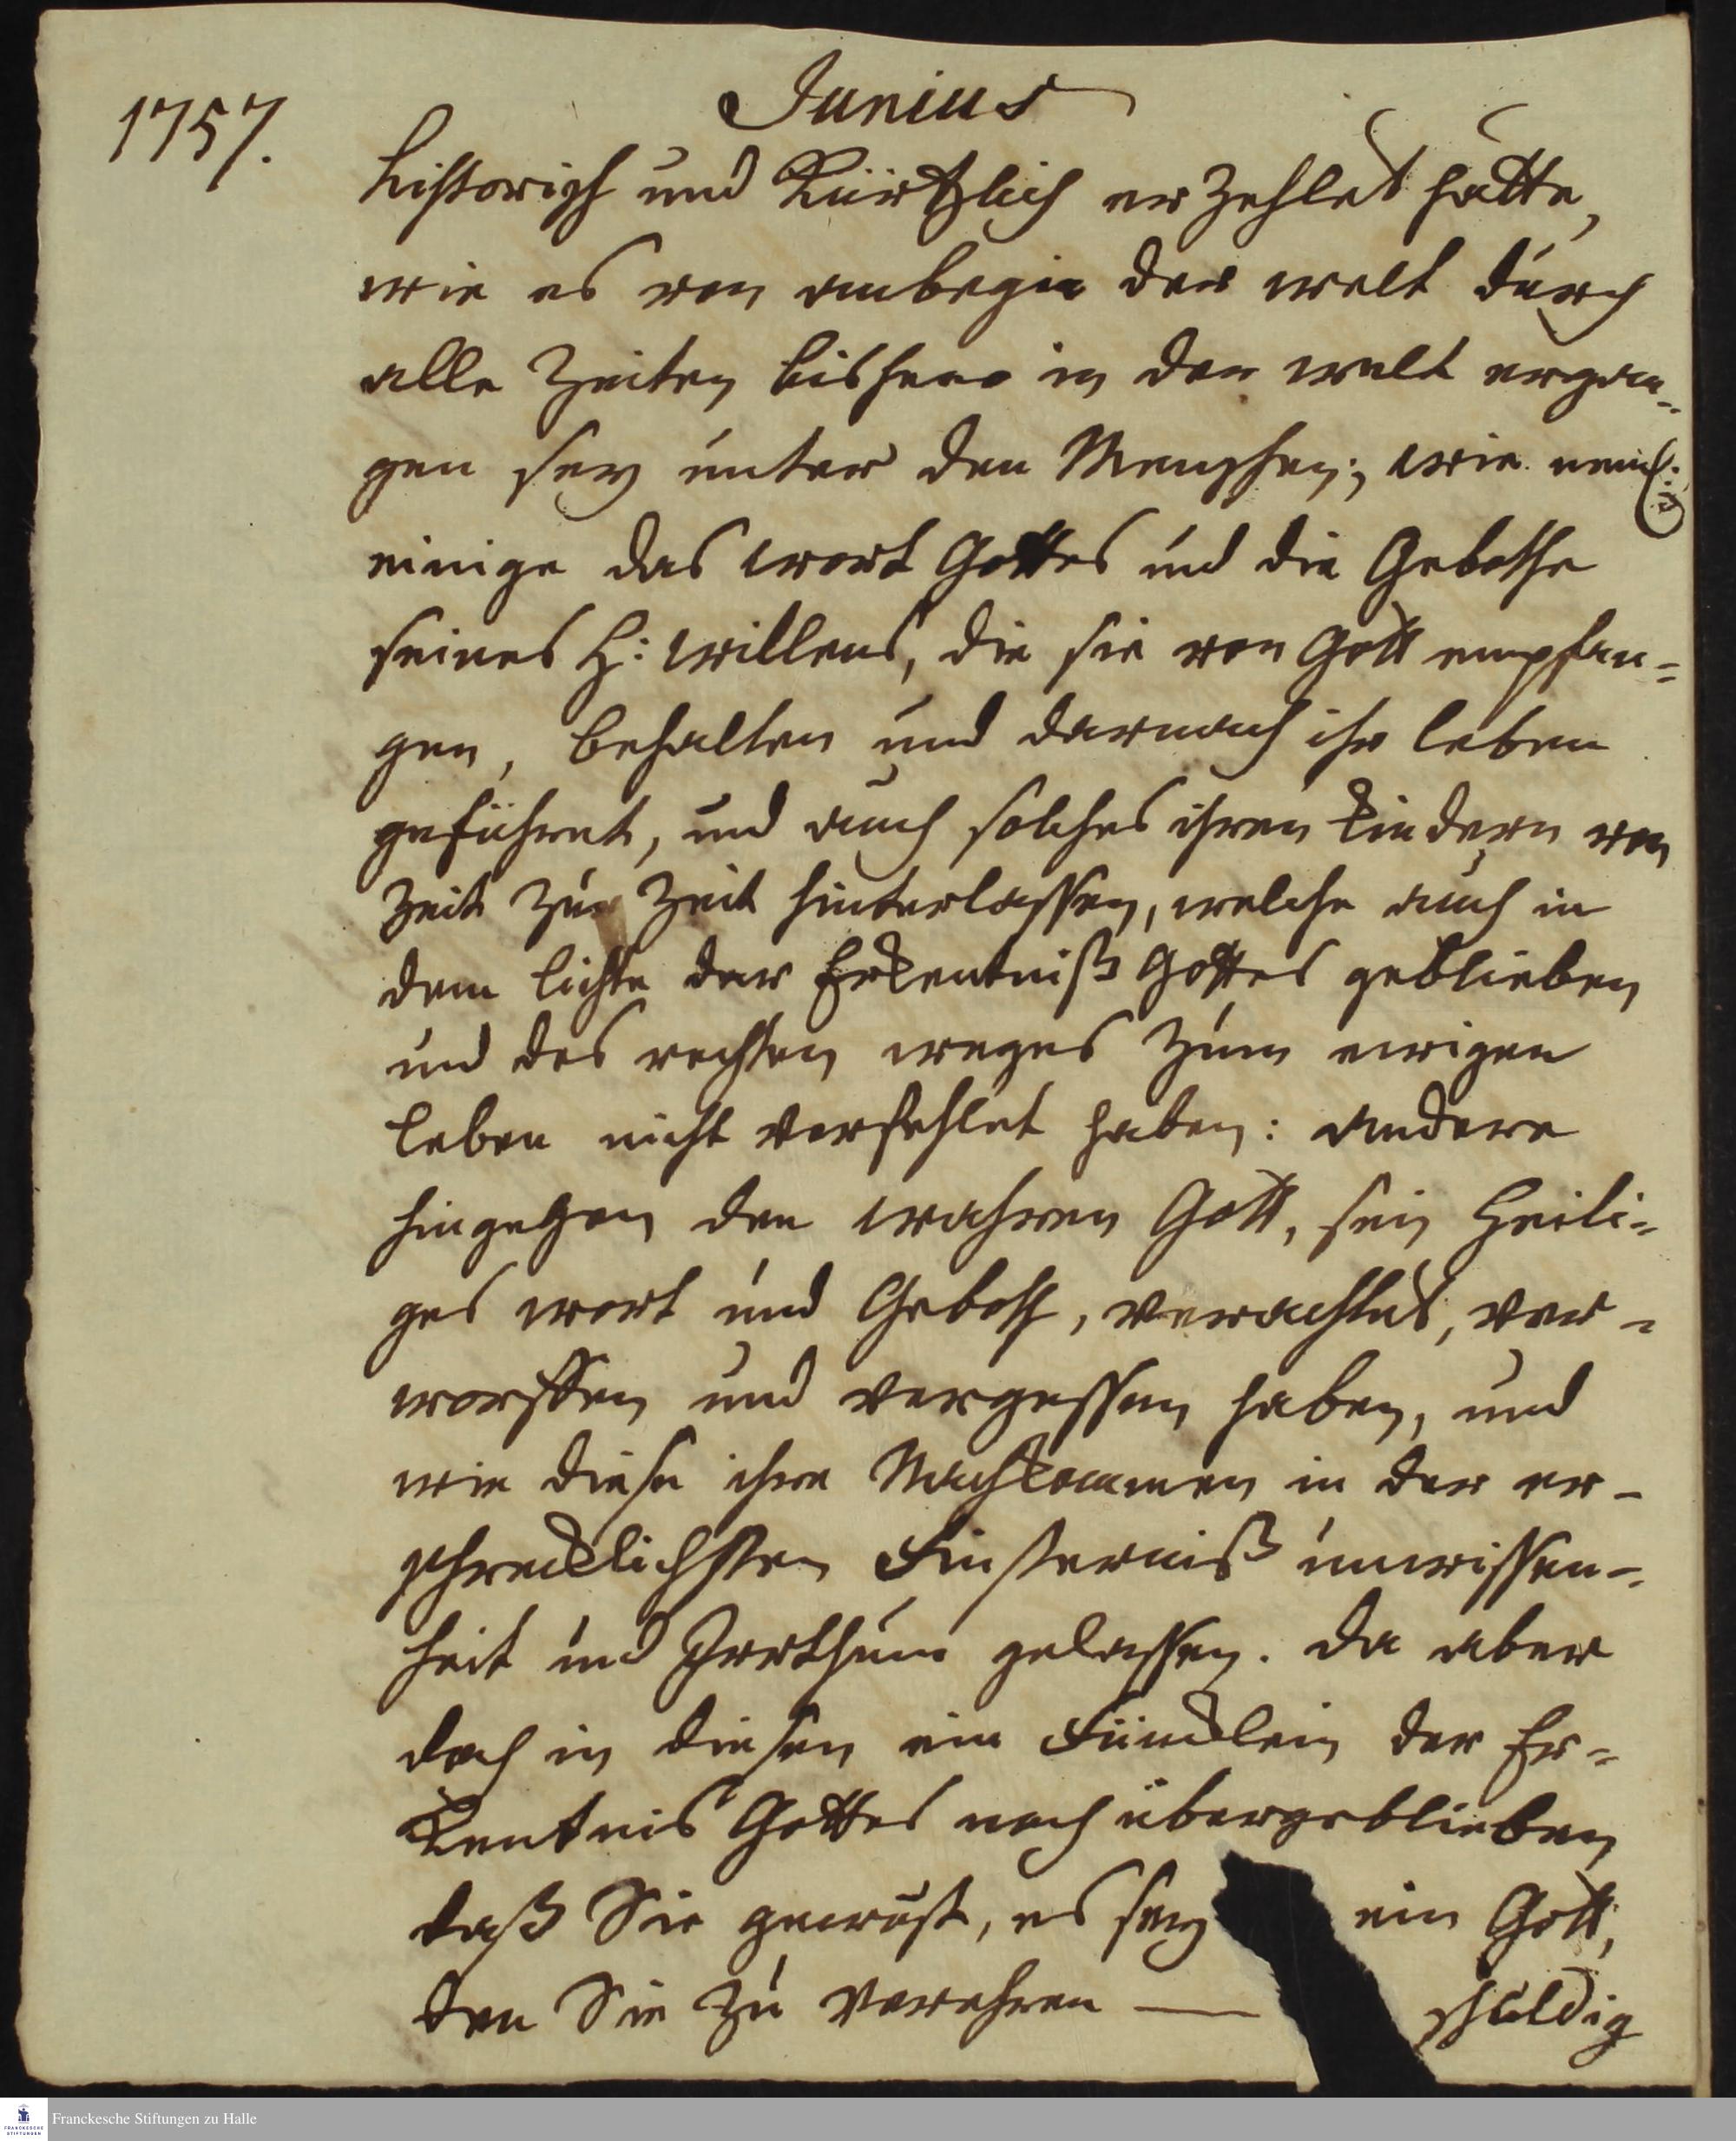 1757.
Junius
historisch und Kürtzlich erzehlet hätte,
wie es von anbegin der welt durch
alle Zeiten bishero in der welt ergan=
gen sey unter den Menschen; wie neml:
einige das wort Gottes und die Gebothe
seines H: willens, die sie von Gott empfan=
gen, behalten und darnach ihr leben
geführet, und auch solches ihren kindern von
Zeit zur Zeit hinterlassen, welche auch in
dem lichte der Erkentniß Gottes geblieben
und des rechten weges zum ewigen
leben nicht verfehlet haben: andere
hingegen den wahren Gott, sein Heili=
ges wort und Geboth, verachtet, ver=
worffen und vergessen haben, und
wie diese ihre Nachkommen in der er=
schrecklichsten Finsterniß unwissen=
heit und Irrthum gelassen. da aber
doch in diesen ein Füncklein der Er=
kentnis Gottes noch übergeblieben
daß Sie gewust, es sey ein Gott,
den Sie zu verehren — schuldig
Franckesche Stiftungen zu Halle
FRANCKESCHE
STIFTUNGEN